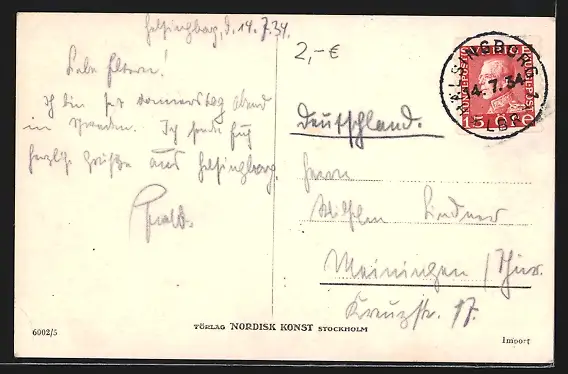 Helsingborg, d. 14.7.34.
Liebe Eltern!
Ich bin seit Donnerstag Abend
in Schweden. Ich sende Euch
herzliche Grüße aus Helsingborg.
2,-€
HÄLSINGBORG 1
14.7.34
LBR
15
Deutschland.
Herrn
Wilhelm Lindner
Meiningen / Thür.
Kreuzstr. 17.
6002/5
FÖRLAG NORDISK KONST STOCKHOLM
Import